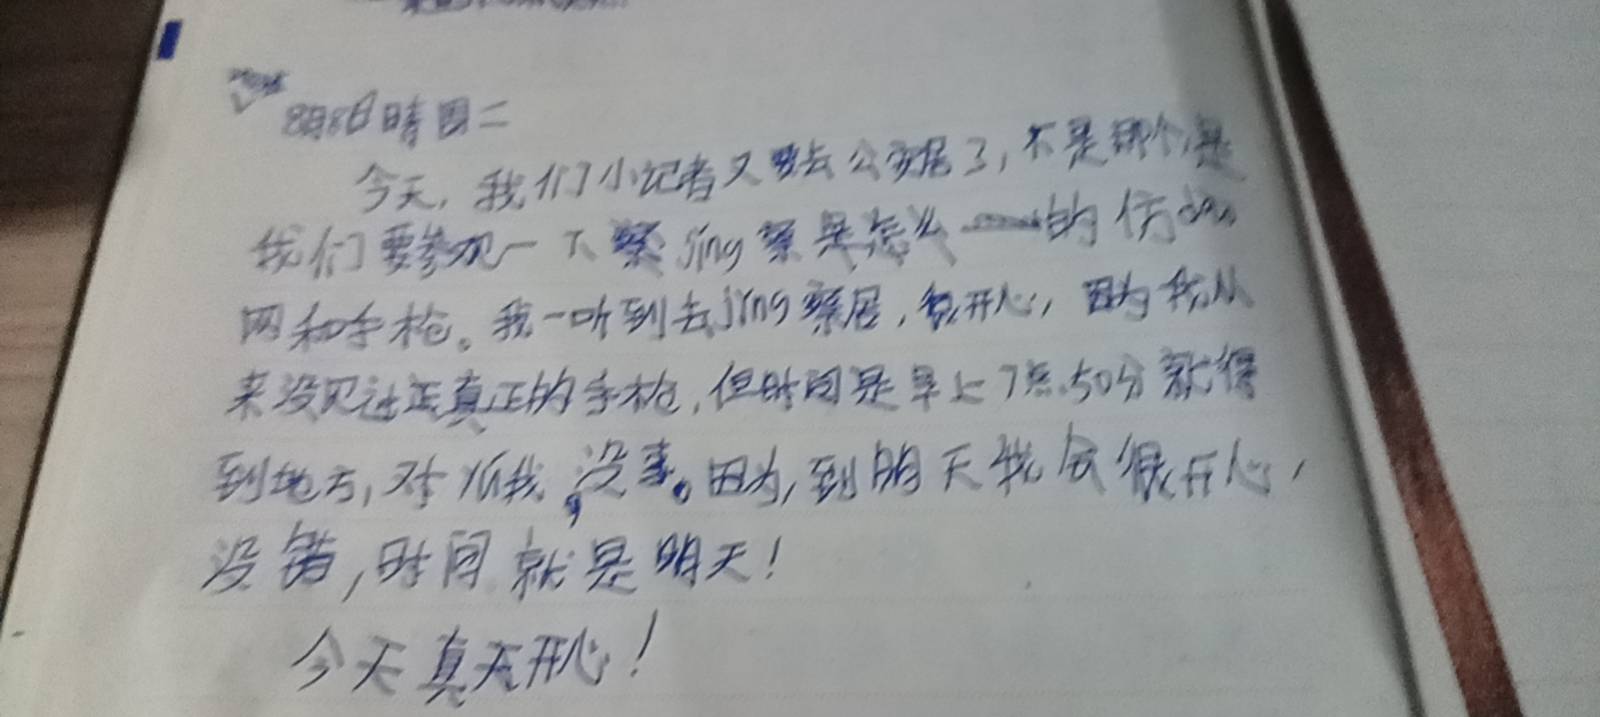 8月8日 晴 周二
今天，我们小记者又要去公安局了，不是那个，是
我们要参观一下 jing察是怎么一的仿
网和手枪。我一听到去jing察局，很开心，因为我从
来没见过正真正的手枪，但时间是早上7点50分就得
到地方，对 我，没事。因为，到明天我会很开心，
没错，时间就是明天！
今天真天开心！